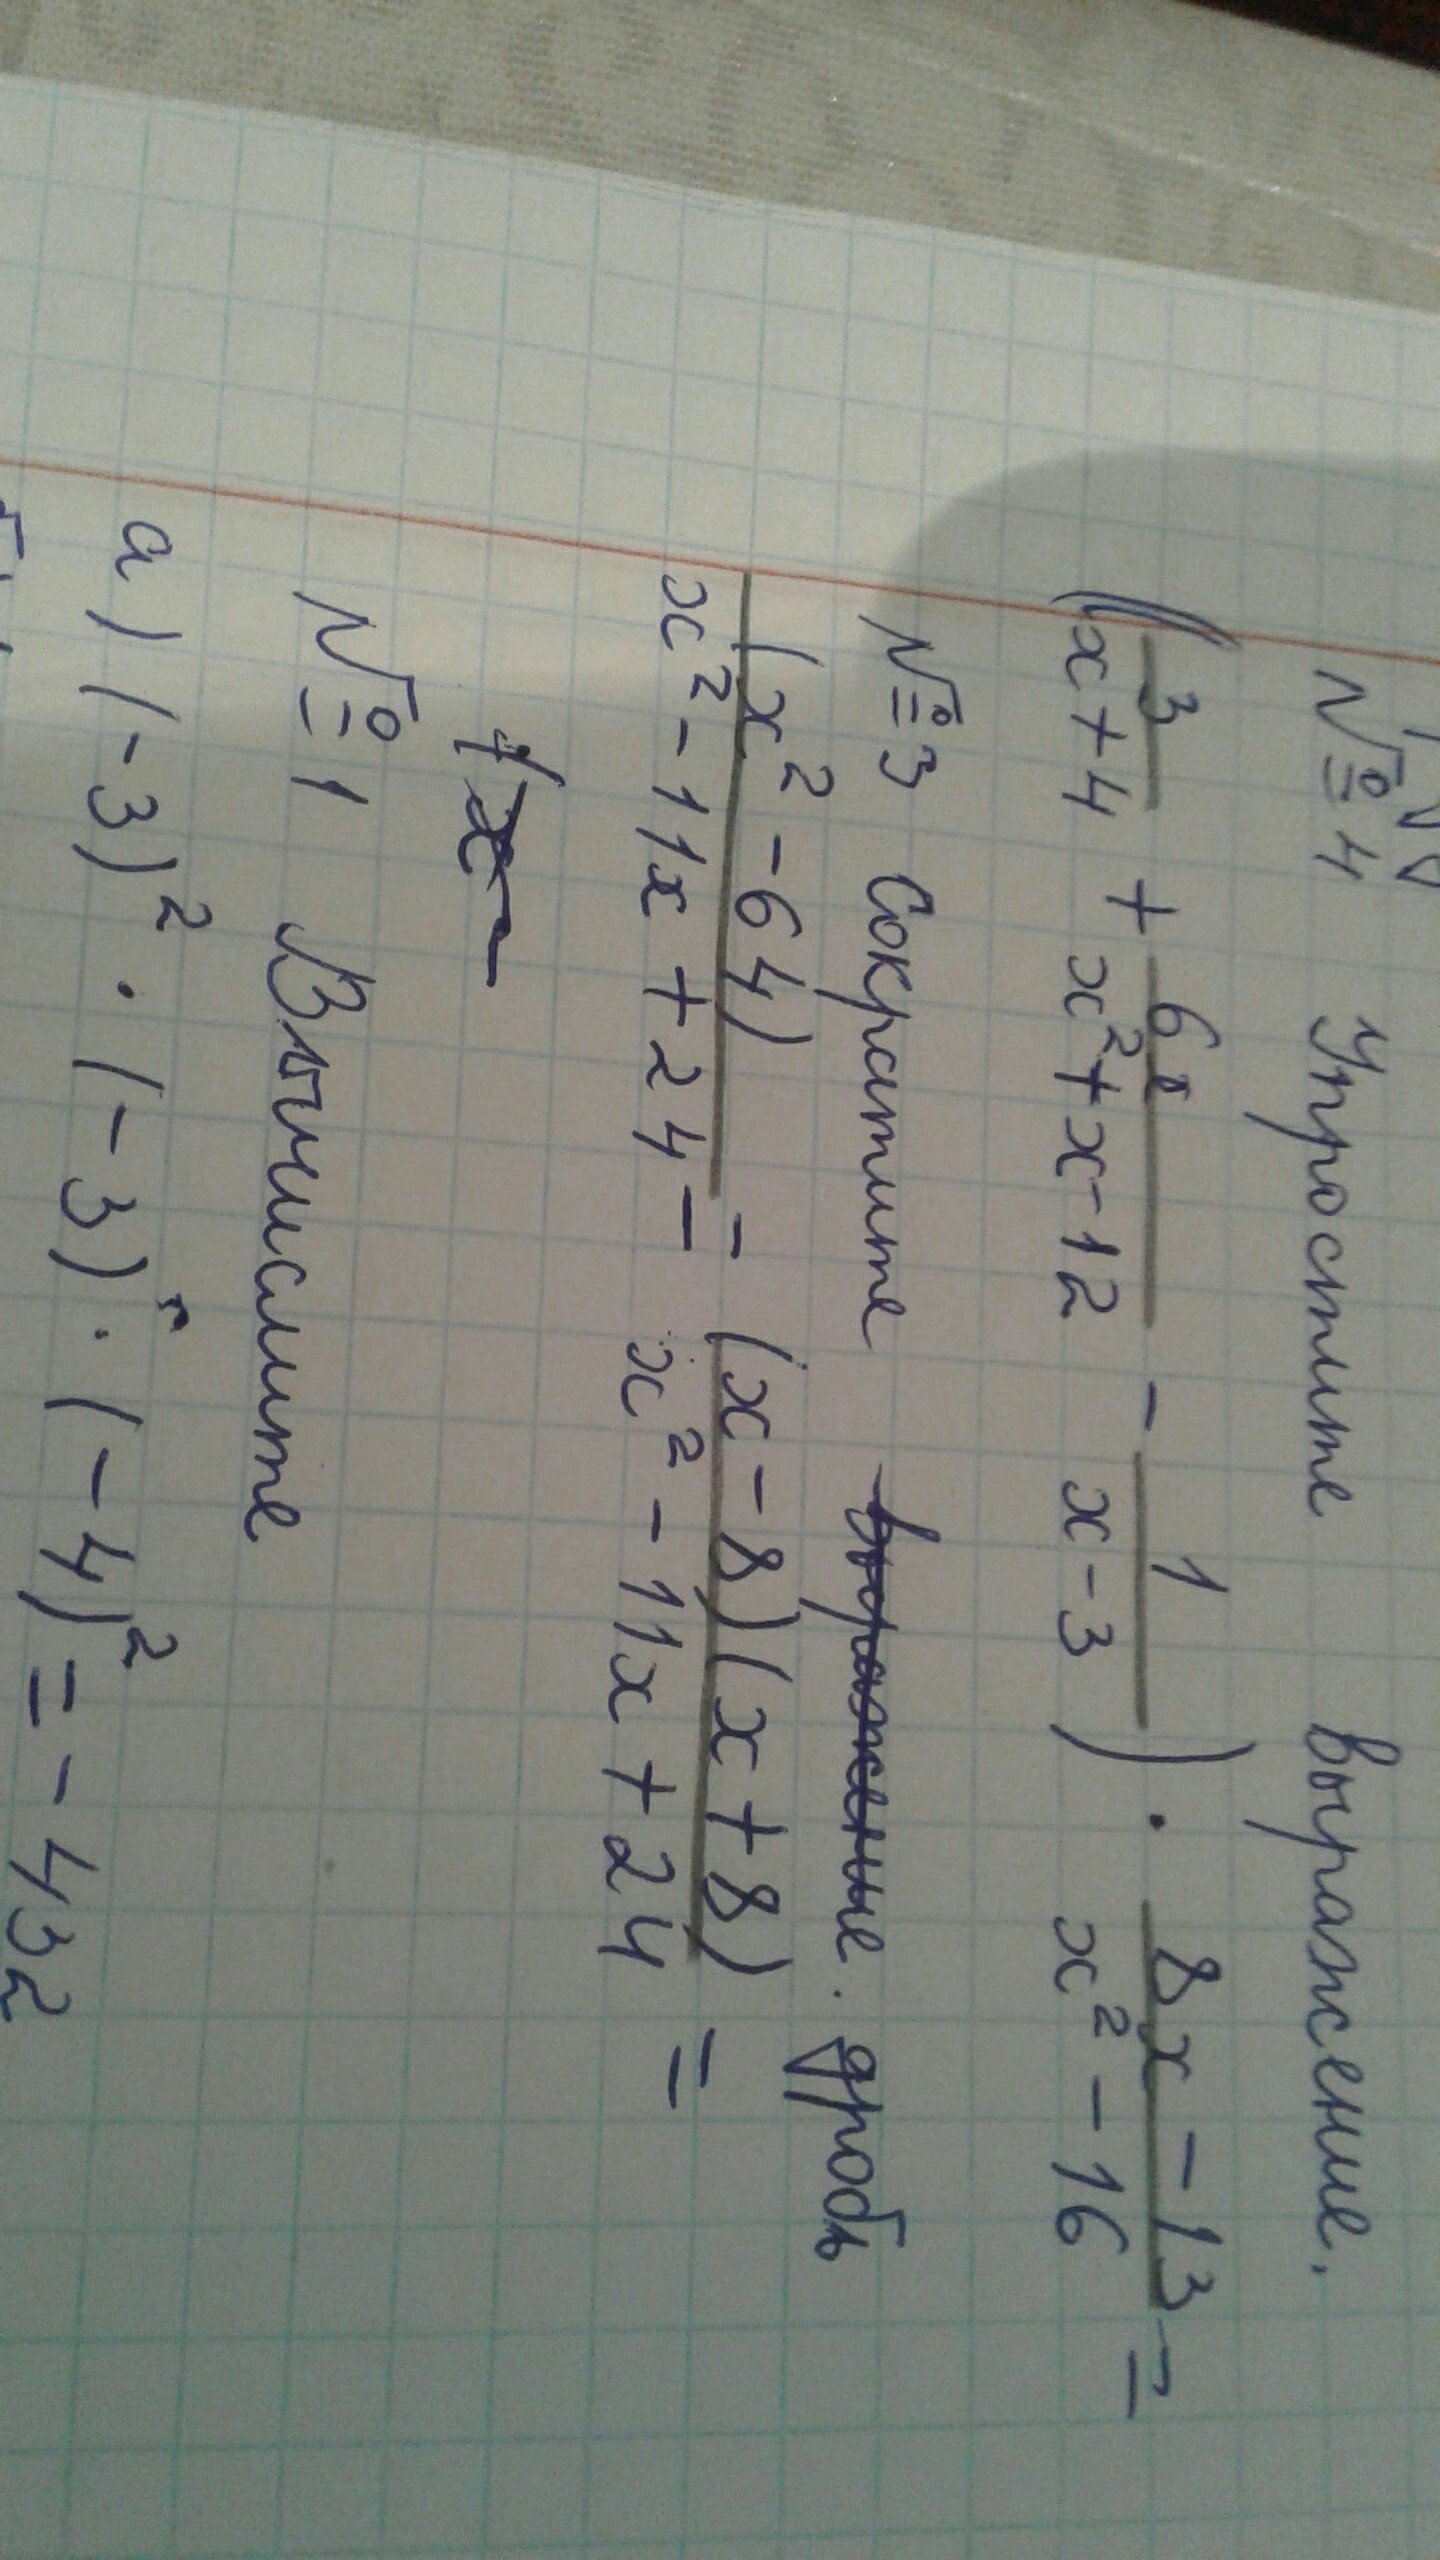 №4 Упростите выражение.
(3/(x+4) + 6/(x²+x-12) - 1/(x-3)) · (8x-13)/(x²-16) =
№3 Сокращите дробь
(x²-64)/(x²-11x+24) = ((x-8)(x+8))/(x²-11x+24) =
№1 Вычислите
а) (-3)² · (-3) · (-4)² = -432